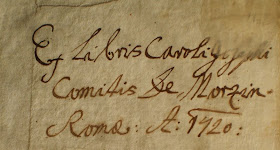 Ex Libris Caroli
Comitis De Morzin.
Romæ: A: 1720: